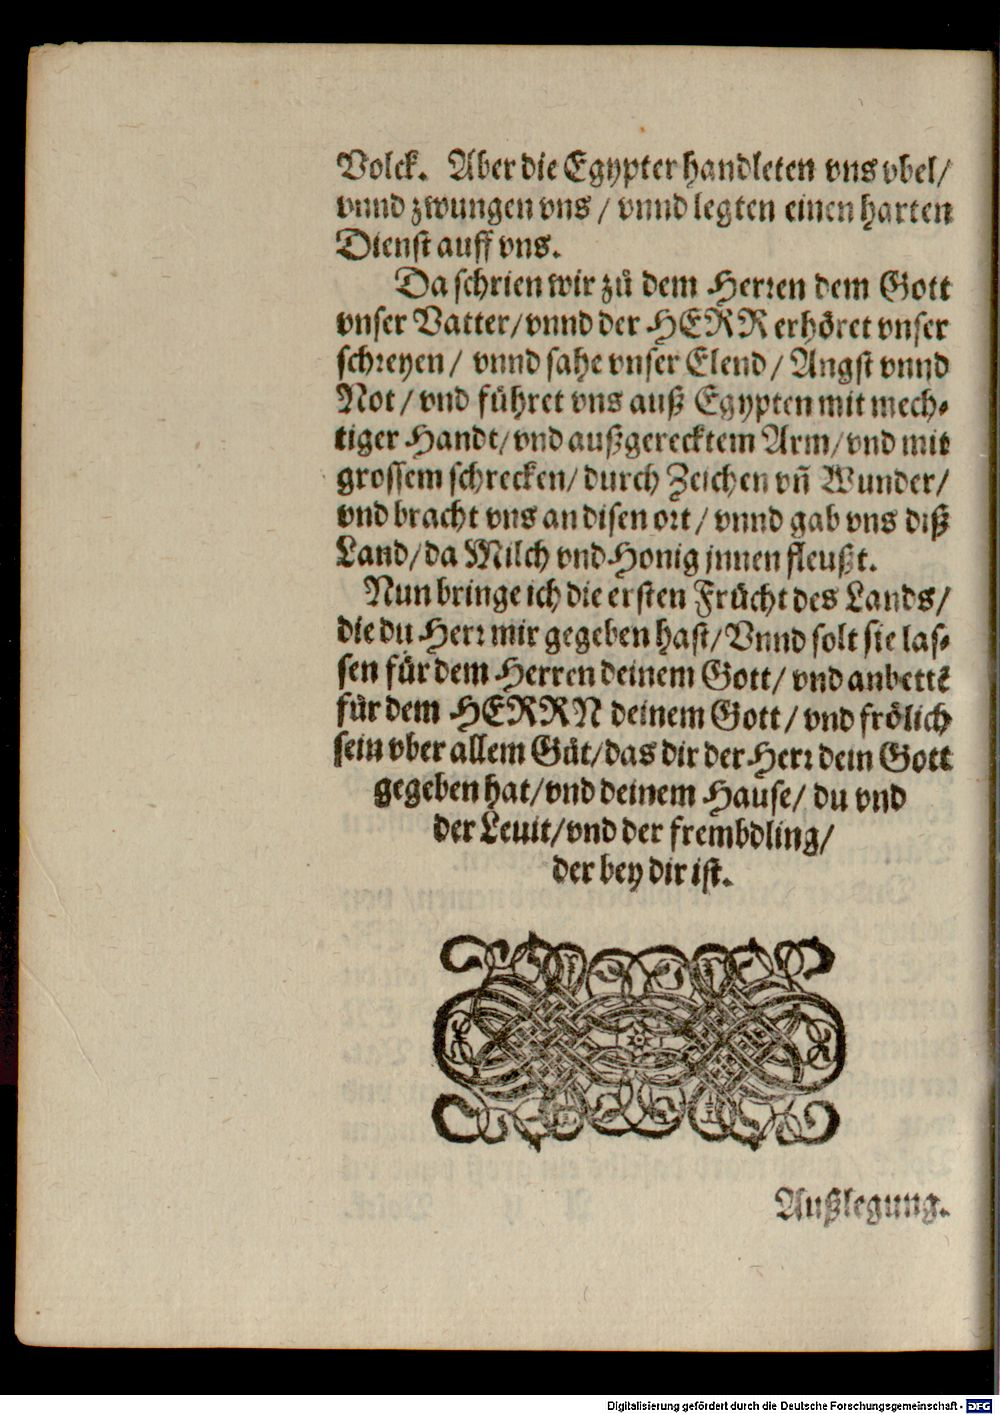 Volck. Aber die Egypter handleten vns vbel/
vnnd zwungen vns / vnnd legten einen harten
Dienst auff vns.
Da schrien wir zů dem Herren dem Gott
vnser Vatter/vnnd der HERR erhöret vnser
schreyen / vnnd sahe vnser Elend / Angst vnnd
Not / vnd führet vns auß Egypten mit mech-
tiger Handt/vnd außgerecktem Arm/vnd mit
grossem schrecken/ durch Zeichen vñ Wunder/
vnd bracht vns an disen ort / vnnd gab vns diß
Land/da Milch vnd Honig jnnen fleußt.
Nun bringe ich die ersten Frücht des Lands/
die du Herr mir gegeben hast/Vnnd solt sie las-
sen für dem Herren deinem Gott/ vnd anbettē
für dem HERRN deinem Gott / vnd frölich
sein vber allem Gůt/das dir der Herr dein Gott
gegeben hat/vnd deinem Hause/ du vnd
der Leuit/vnd der frembdling/
der bey dir ist.
Außlegung.
Digitalisierung gefördert durch die Deutsche Forschungsgemeinschaft - DFG